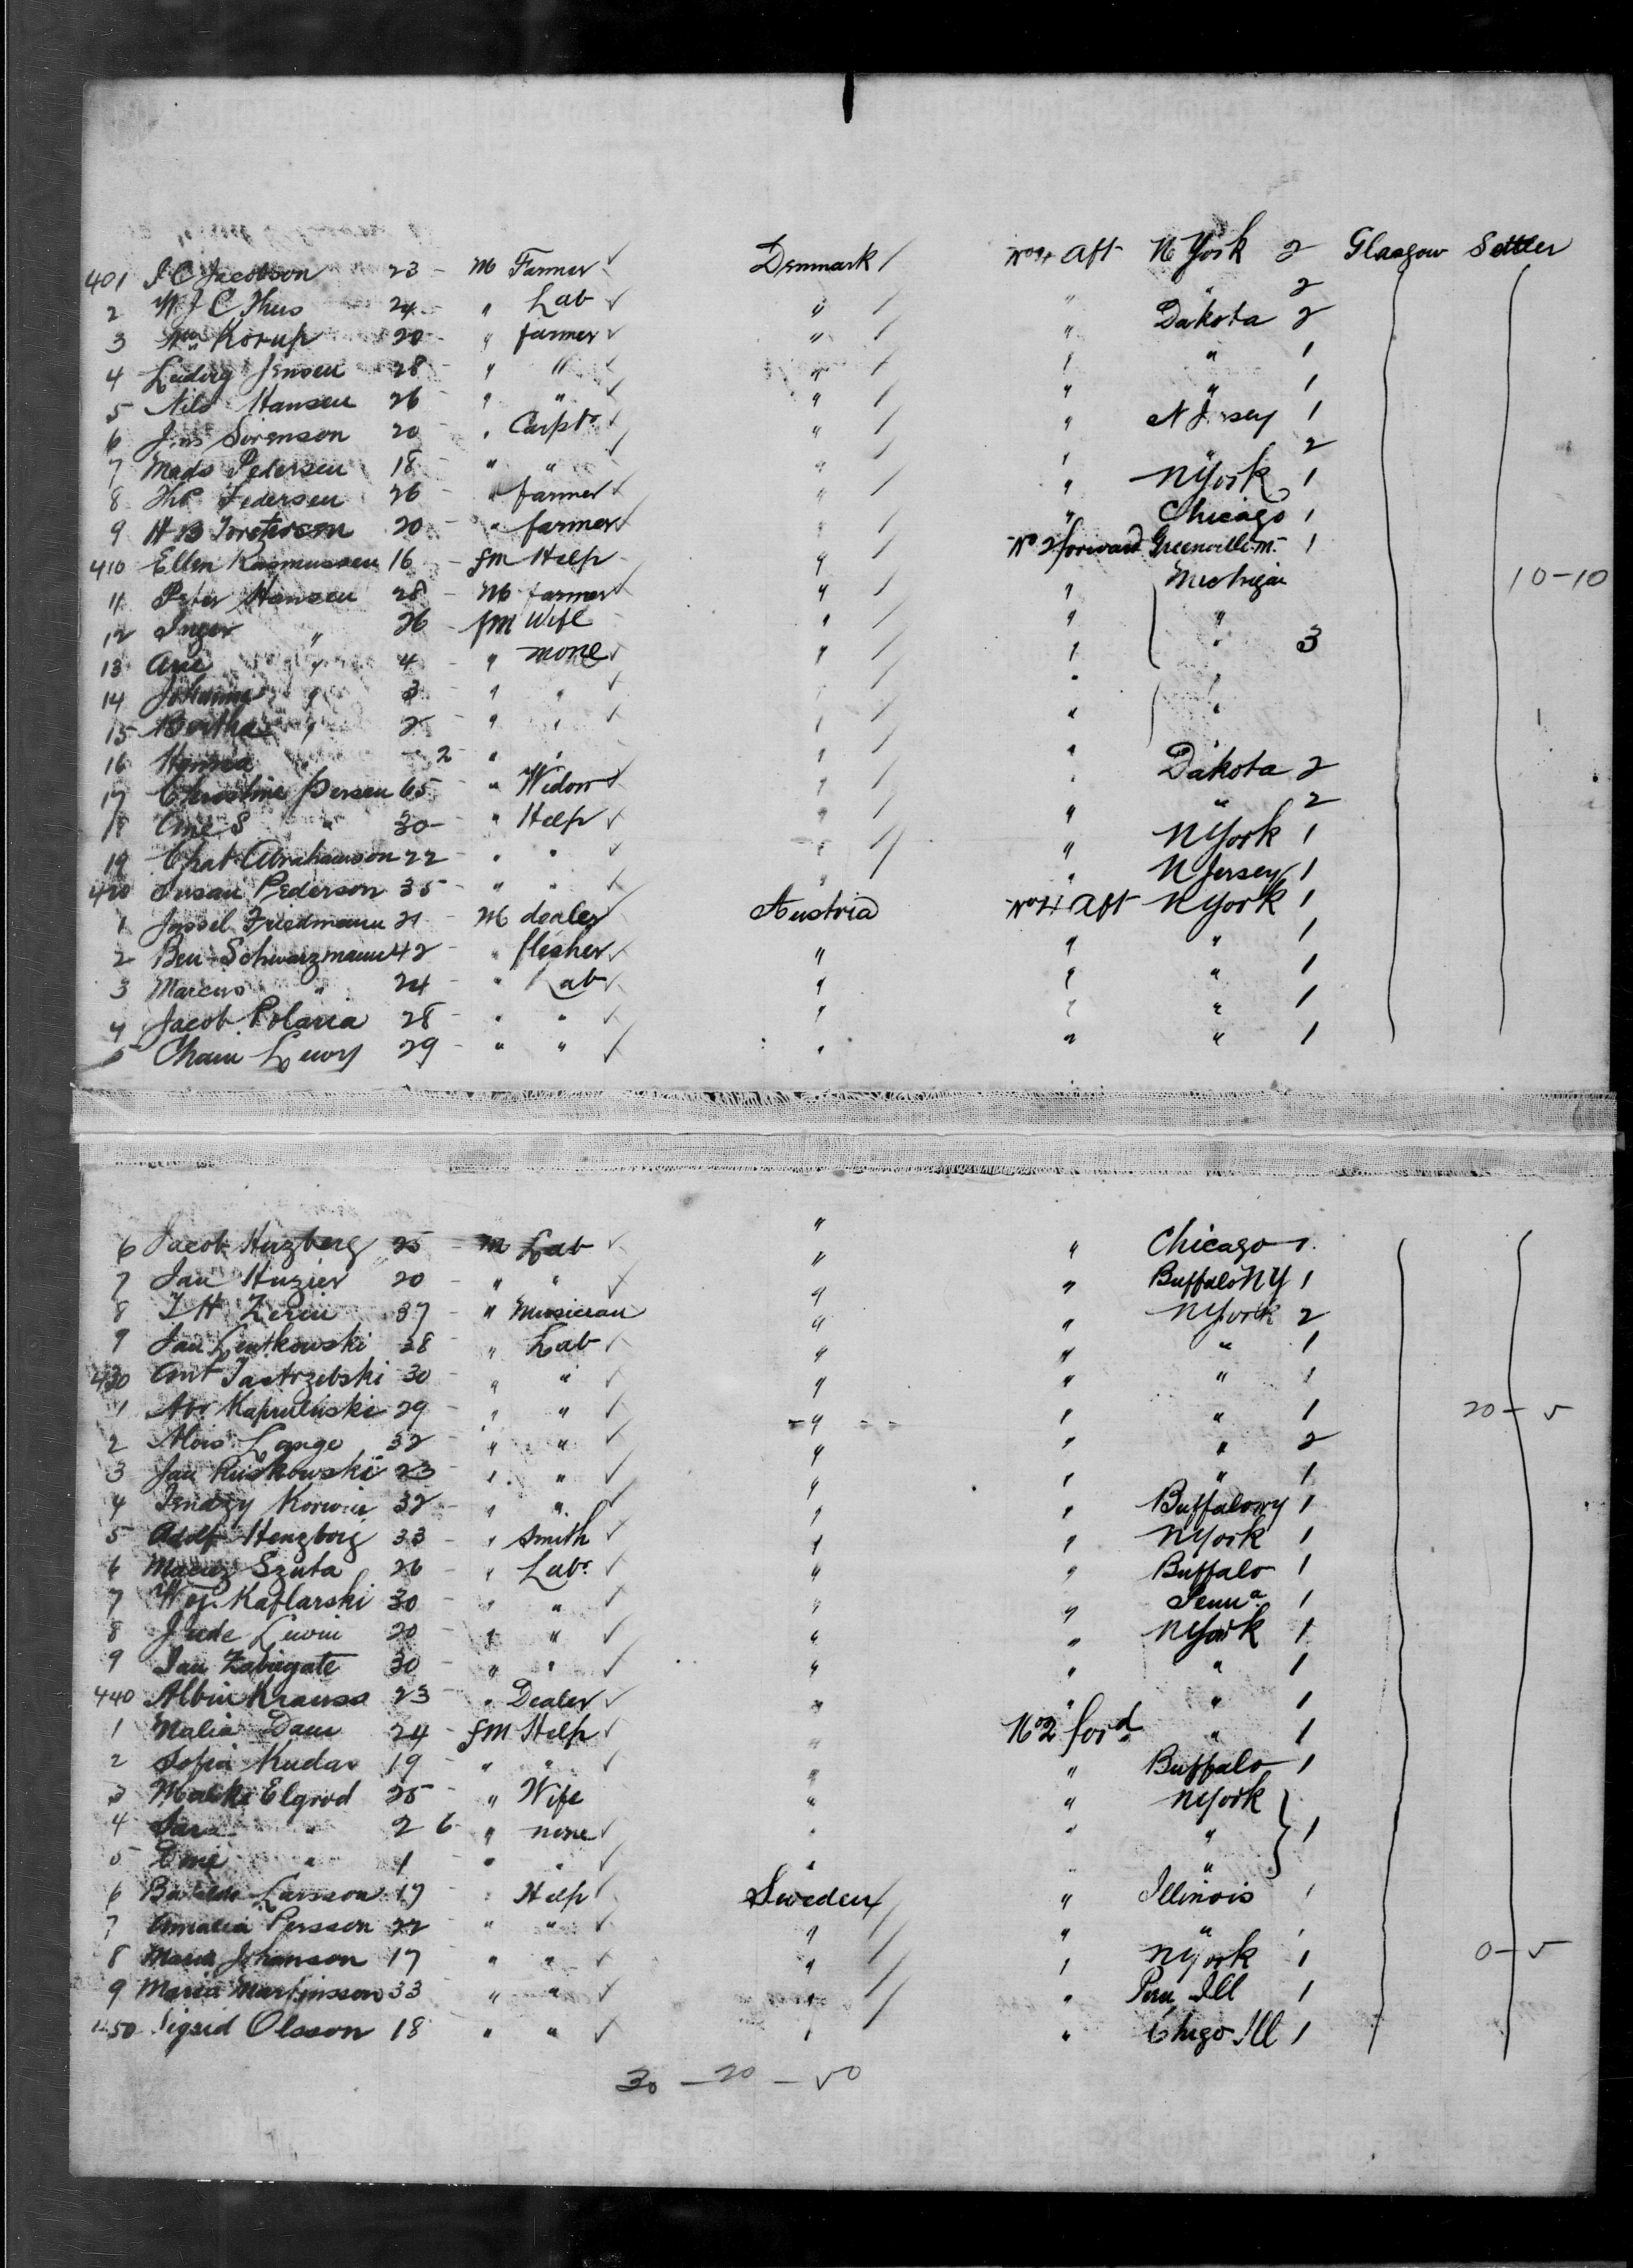 401 J C Jacobson 23 - M Farmer Denmark No 4 Aft N York 2 Glasgow Settler
2 W J C Thus 24 - " Lab " " " 2
3 Korup 20 - " farmer " " Dakota 2
4 Ludvig Jensen 28 - " " " " " 1
5 Nils Hansen 26 - " " " " " 1
6 Jens Sorenson 20 - " Carptr " " N Jersey 1
7 Mads Petersen 18 - " " " " " 2
8 Thos Pedersen 26 - " farmer " " N York 1
9 H B 20 - " farmer " " Chicago 1
410 Ellen Rasmussen 16 - fm Help " No 2 forward Greenville M. 1
11 Peter Hansen 28 - M farmer " " Michigan 10-10
12 Inger " 26 - fm Wife " " "
13 Ane " 4 - " none " " " 3
14 Johanne " 3 - " " " " "
15 Bertha " 2 - " " " " "
16 " 2 " " " " "
17 Christine Persen 65 - " Widow " " Dakota 2
18 Ane S " 30 - " Help " " " 2
19 Chat Abrahamson 22 - " " " " N York 1
420 Susan Pederson 35 - " " " " N Jersey 1
1 Jossel Friedmann 21 - M dealer Austria No 4 Aft N York 1
2 Ben Schwarzmann 42 - " flesher " " " 1
3 Marcus " 24 - " Lab " " " 1
4 Jacob Polaria 28 - " " " " " 1
5 Chaim Lewy 29 - " " " " " 1
6 Jacob Herzberg 25 - M Lab " " Chicago 1
7 Jan Huzier 20 - " " " " Buffalo NY 1
8 J H Zerin 37 - " Musician " " N York 2
9 Jan Lentkowski 28 " Lab " " " 1
430 Ant Jastrzebski 30 - " " " " " 1
1 Abr Kaprulinski 29 - " " " " " 1 20 - 5
2 Alois Lange 32 - " " " " " 2
3 Jan Ruskowski 23 - " " " " " 1
4 Korwin 32 - " " " " Buffalo NY 1
5 Adolf Henzborg 33 - " Smith " " N York 1
6 Maciez Szuta 26 - " Labr " " Buffalo 1
7 Woj. Kaflarski 30 - " " " " Penna 1
8 Jude Lewin 20 - " " " " N York 1
9 Jan Zabiegate 30 - " " " " " 1
440 Albin Krauss 23 - " Dealer " " " 1
1 Malia Dam 24 - fm Help " No 2 ford " 1
2 Sofia Kudas 19 - " " " " Buffalo 1
3 Malke Elgrod 25 - " Wife " " N York
4 Sara " 2 6 " none " " " 1
5 " 1 " " " " "
6 Larsson 17 - " Help Sweden " Illinois 1
7 Amalia Persson 22 - " " " " " 1
8 Maria Johanson 17 " " " " N York 1 0 - 5
9 Maria Martinsson 33 " " " " Peru Ill 1
450 Sigrid Olsson 18 " " " " Chigo Ill 1
30 - 20 - 50